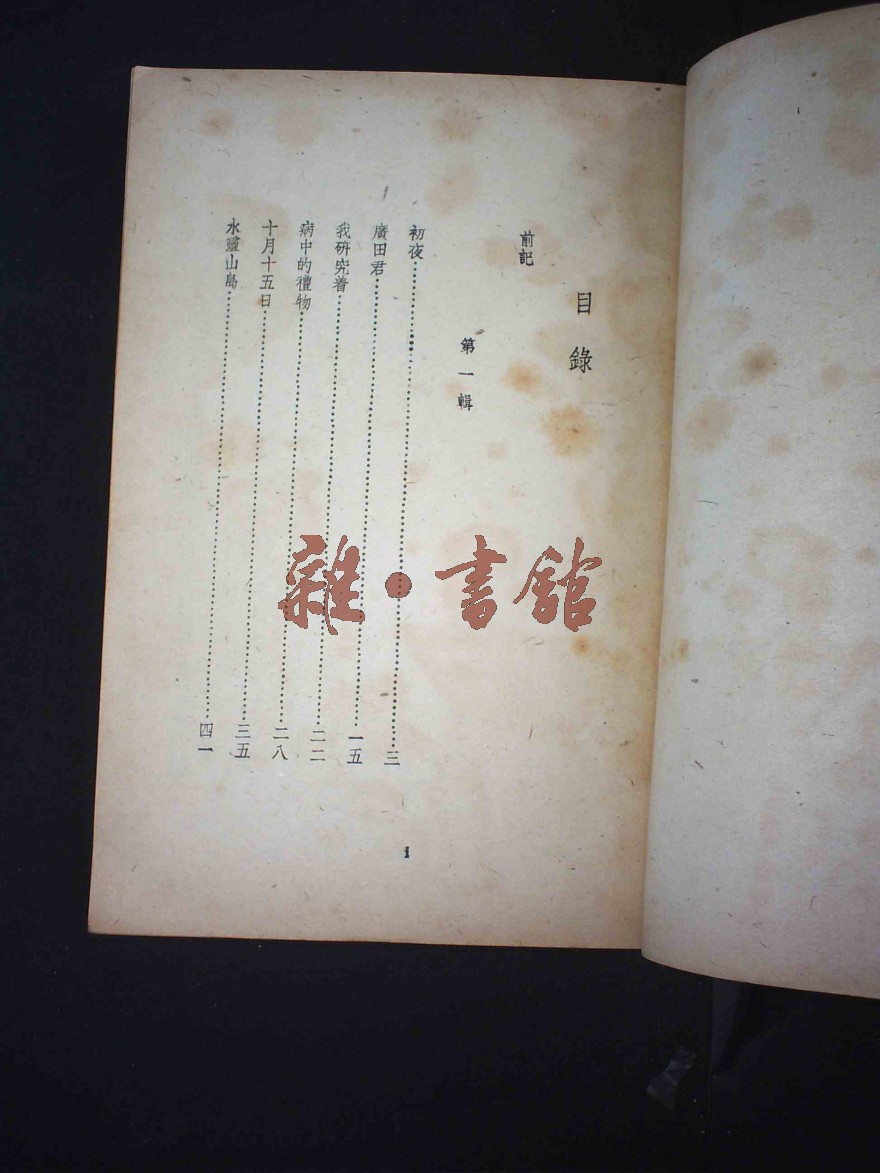 目錄
前記
第一輯
初夜……三
廣田君……一五
我研究着……二二
病中的禮物……二八
十月十五日……三五
水靈山島……四一
1
雜·書館